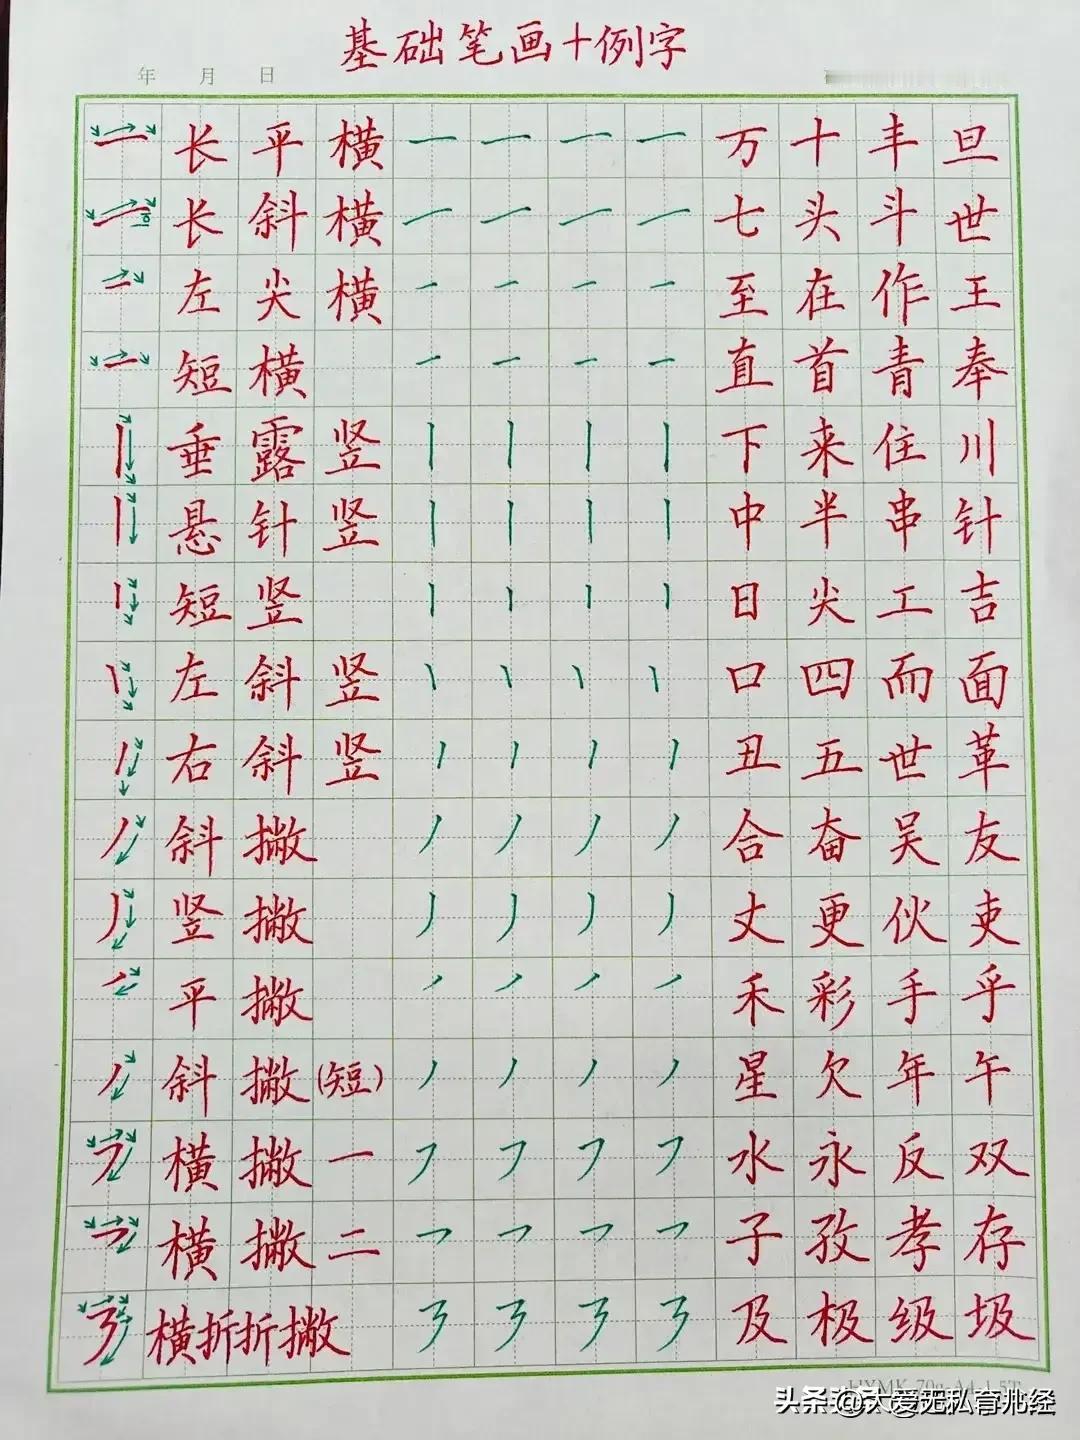 基础笔画+例字
年 月 日
长平横 一 一 一 一 万十丰旦
长斜横 一 一 一 一 七头斗世
左尖横 一 一 一 一 至在作王
短横 一 一 一 一 直首青奉
垂露竖 丨 丨 丨 丨 下来住川
悬针竖 丨 丨 丨 丨 中半串针
短竖 丨 丨 丨 丨 日尖工吉
左斜竖 丨 丨 丨 丨 口四而面
右斜竖 丨 丨 丨 丨 丑五世革
斜撇 丿 丿 丿 丿 合奋吴友
竖撇 丿 丿 丿 丿 丈更伙吏
平撇 丿 丿 丿 丿 禾彩手乎
斜撇(短) 丿 丿 丿 丿 星欠年午
横撇一 ㇇ ㇇ ㇇ ㇇ 水永反双
横撇二 ㇇ ㇇ ㇇ ㇇ 子孜孝存
横折折撇 ㇋ ㇋ ㇋ ㇋ 及极级圾
头条@大爱无私育儿经